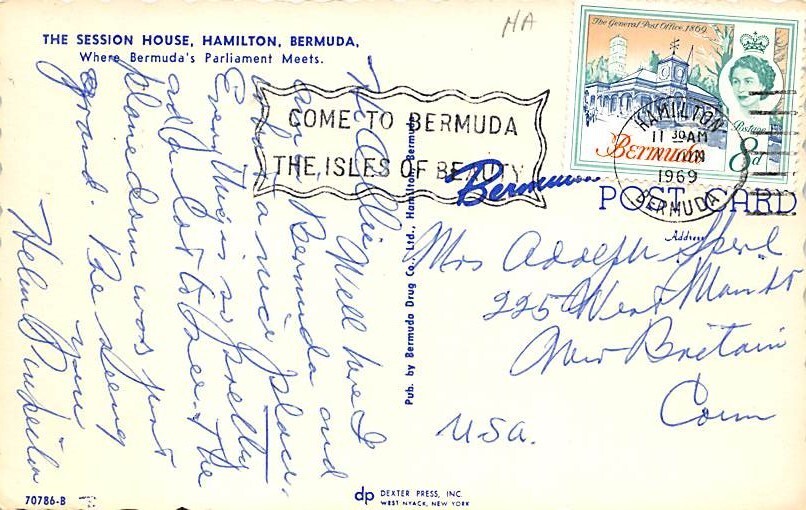 NA
THE SESSION HOUSE, HAMILTON, BERMUDA,
Where Bermuda's Parliament Meets.
The General Post Office, 1869
Postage
Bermuda
8d
COME TO BERMUDA
THE ISLES OF BEAUTY
HAMILTON
11 30 AM
JUN
1969
BERMUDA
Bermuda
POST CARD
Address
Hi Allie Well here I
am in Bermuda and
what a nice place.
Everything is so pretty
and a lot to see. The
plane down was just
grand. Be seeing
you
Helen
Pub. by Bermuda Drug Co., Ltd., Hamilton, Bermuda
Mrs Adolph
225 West Main St
New Britain
Conn
USA.
70786-B
dp DEXTER PRESS, INC.
WEST NYACK, NEW YORK